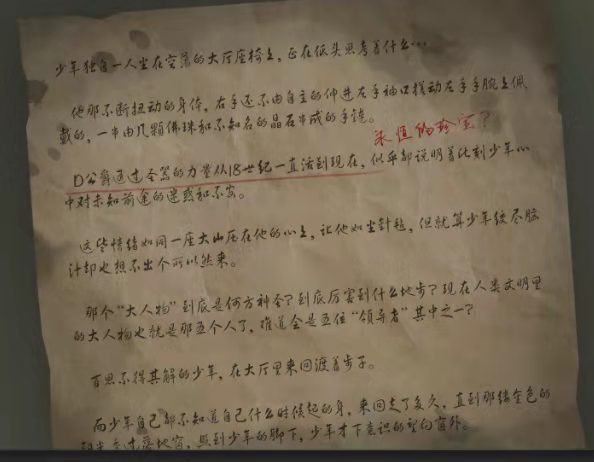 少年独自一人坐在空荡的大厅座椅上,正在低头思考着什么…
他那不断扭动的身体,右手还不由自主的伸进左手袖口拨动左手手腕上佩
戴的,一串由几颗佛珠和不知名的晶石串成的手链。
朱恒的珍宝?
D公爵通过圣器的力量从18世纪一直活到现在,似乎都说明着此刻少年心
中对未知前途的迷惑和不安。
这些情绪如同一座大山压在他的心上,让他如坐针毡,但就算少年绞尽脑
汁却也想不出个可以然来。
那个“大人物”到底是何方神圣?到底厉害到什么地步?现在人类文明里
的大人物也就是那五个人了,难道会是五位“领导者”其中之一?
百思不得其解的少年,在大厅里来回渡着步子。
而少年自己都不知道自己什么时候起的身,来回走了多久,直到那缕金色的
阳光穿过落地窗,照到少年的脚下,少年才下意识的望向窗外。